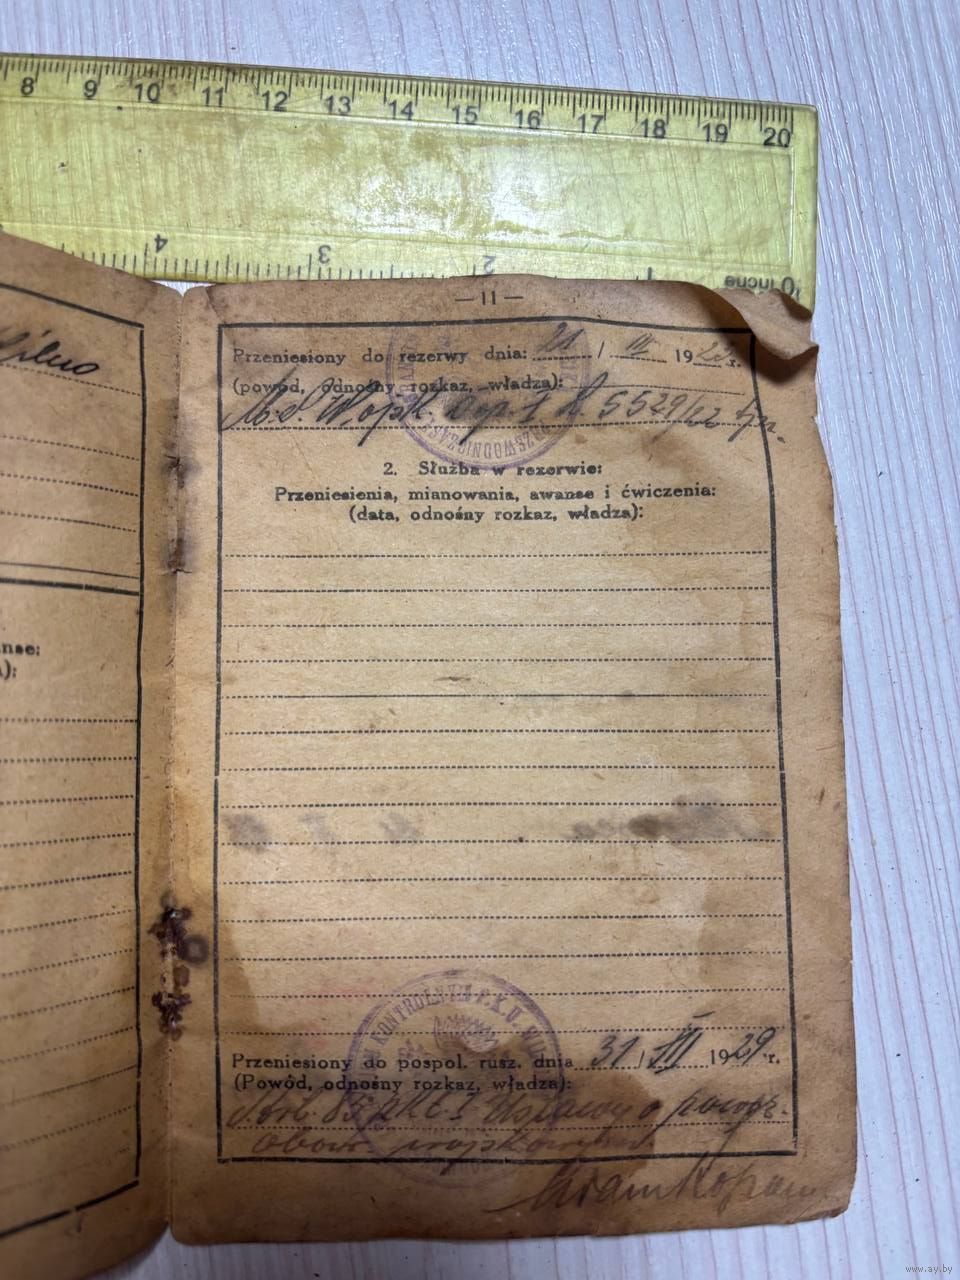 8 9 10 11 12 13 14 15 16 17 18 19 20
4 3 2 1 0 inche
Wilno
— 11 —
Przeniesiony do rezerwy dnia: 21 / III 1923 r.
(powód, odnośny rozkaz, władza):
M. S. Wojsk. Dep. 1 L. 5529/22
2. Służba w rezerwie:
Przeniesienia, mianowania, awanse i ćwiczenia:
(data, odnośny rozkaz, władza):
anse;
):
KONTROLNYM P.K.U.
Przeniesiony do pospol. rusz. dnia 31 / XII 1929 r.
(Powód, odnośny rozkaz, władza):
pkt. 1 Ustawy o powsz.
obow. wojskowym
www.ay.by